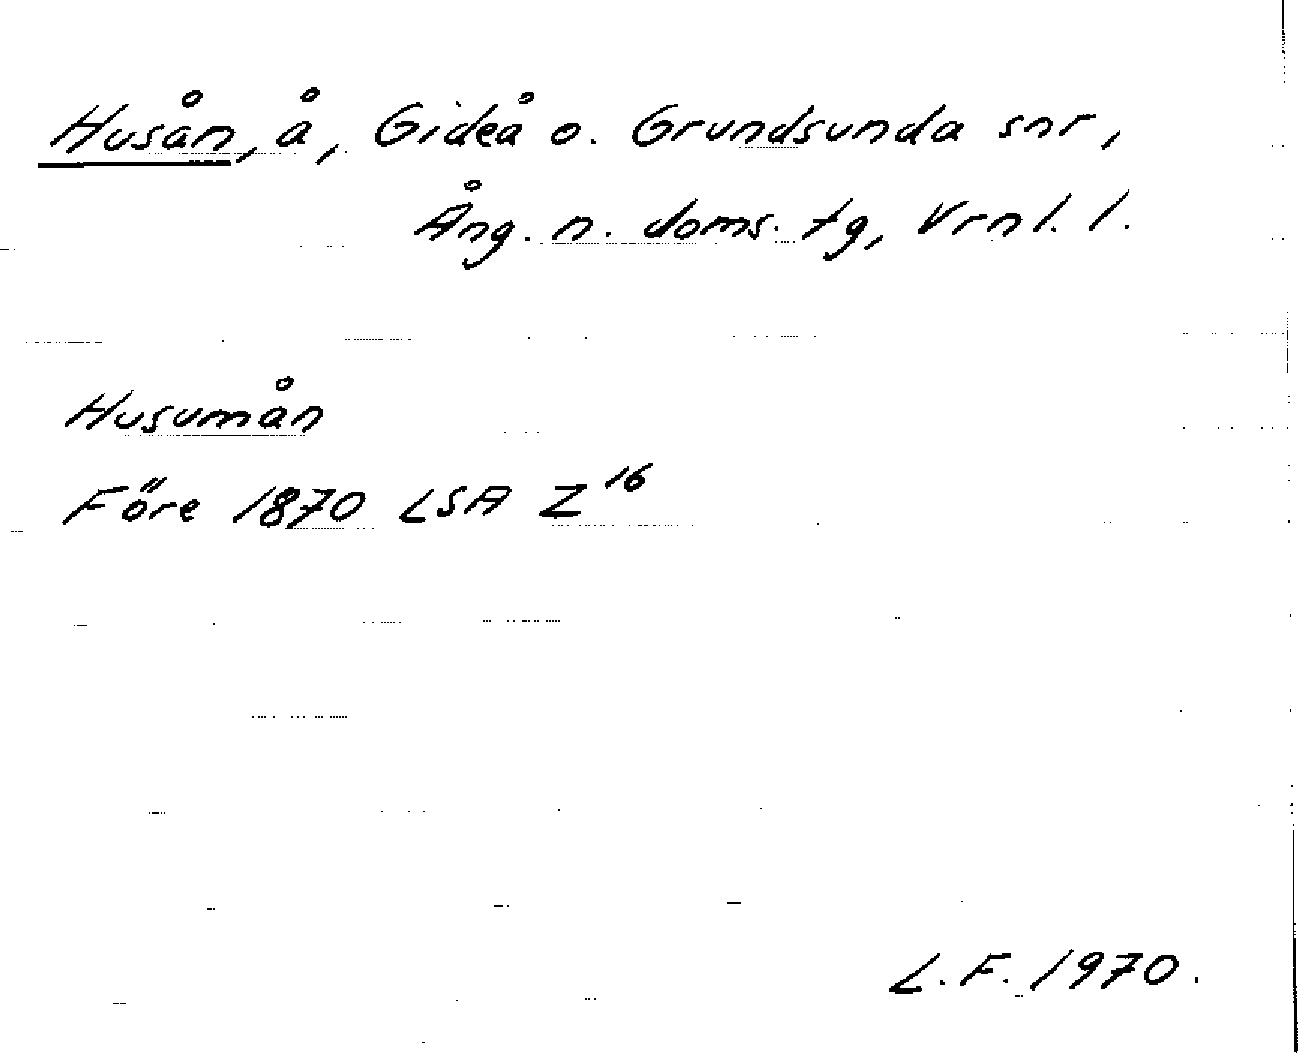 Husån, å, Gideå o. Grundsunda snr,
Ång. n. doms. tg, Vrnl. l.
Husumån
Före 1870 LSA Z16
L.F. 1970.